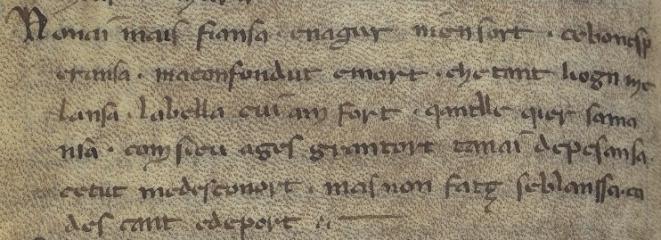 Nonai mais fiansa · enagur men sort · cebonesp
eransa · maconfondut emort · chetant liogn me
lansa · labella cui am fort · qantlle qier sama
nia · com sieu ages grantort tanai depesansa
cetut medesconort · mas non fatz seblanssa ca
des cant edeport